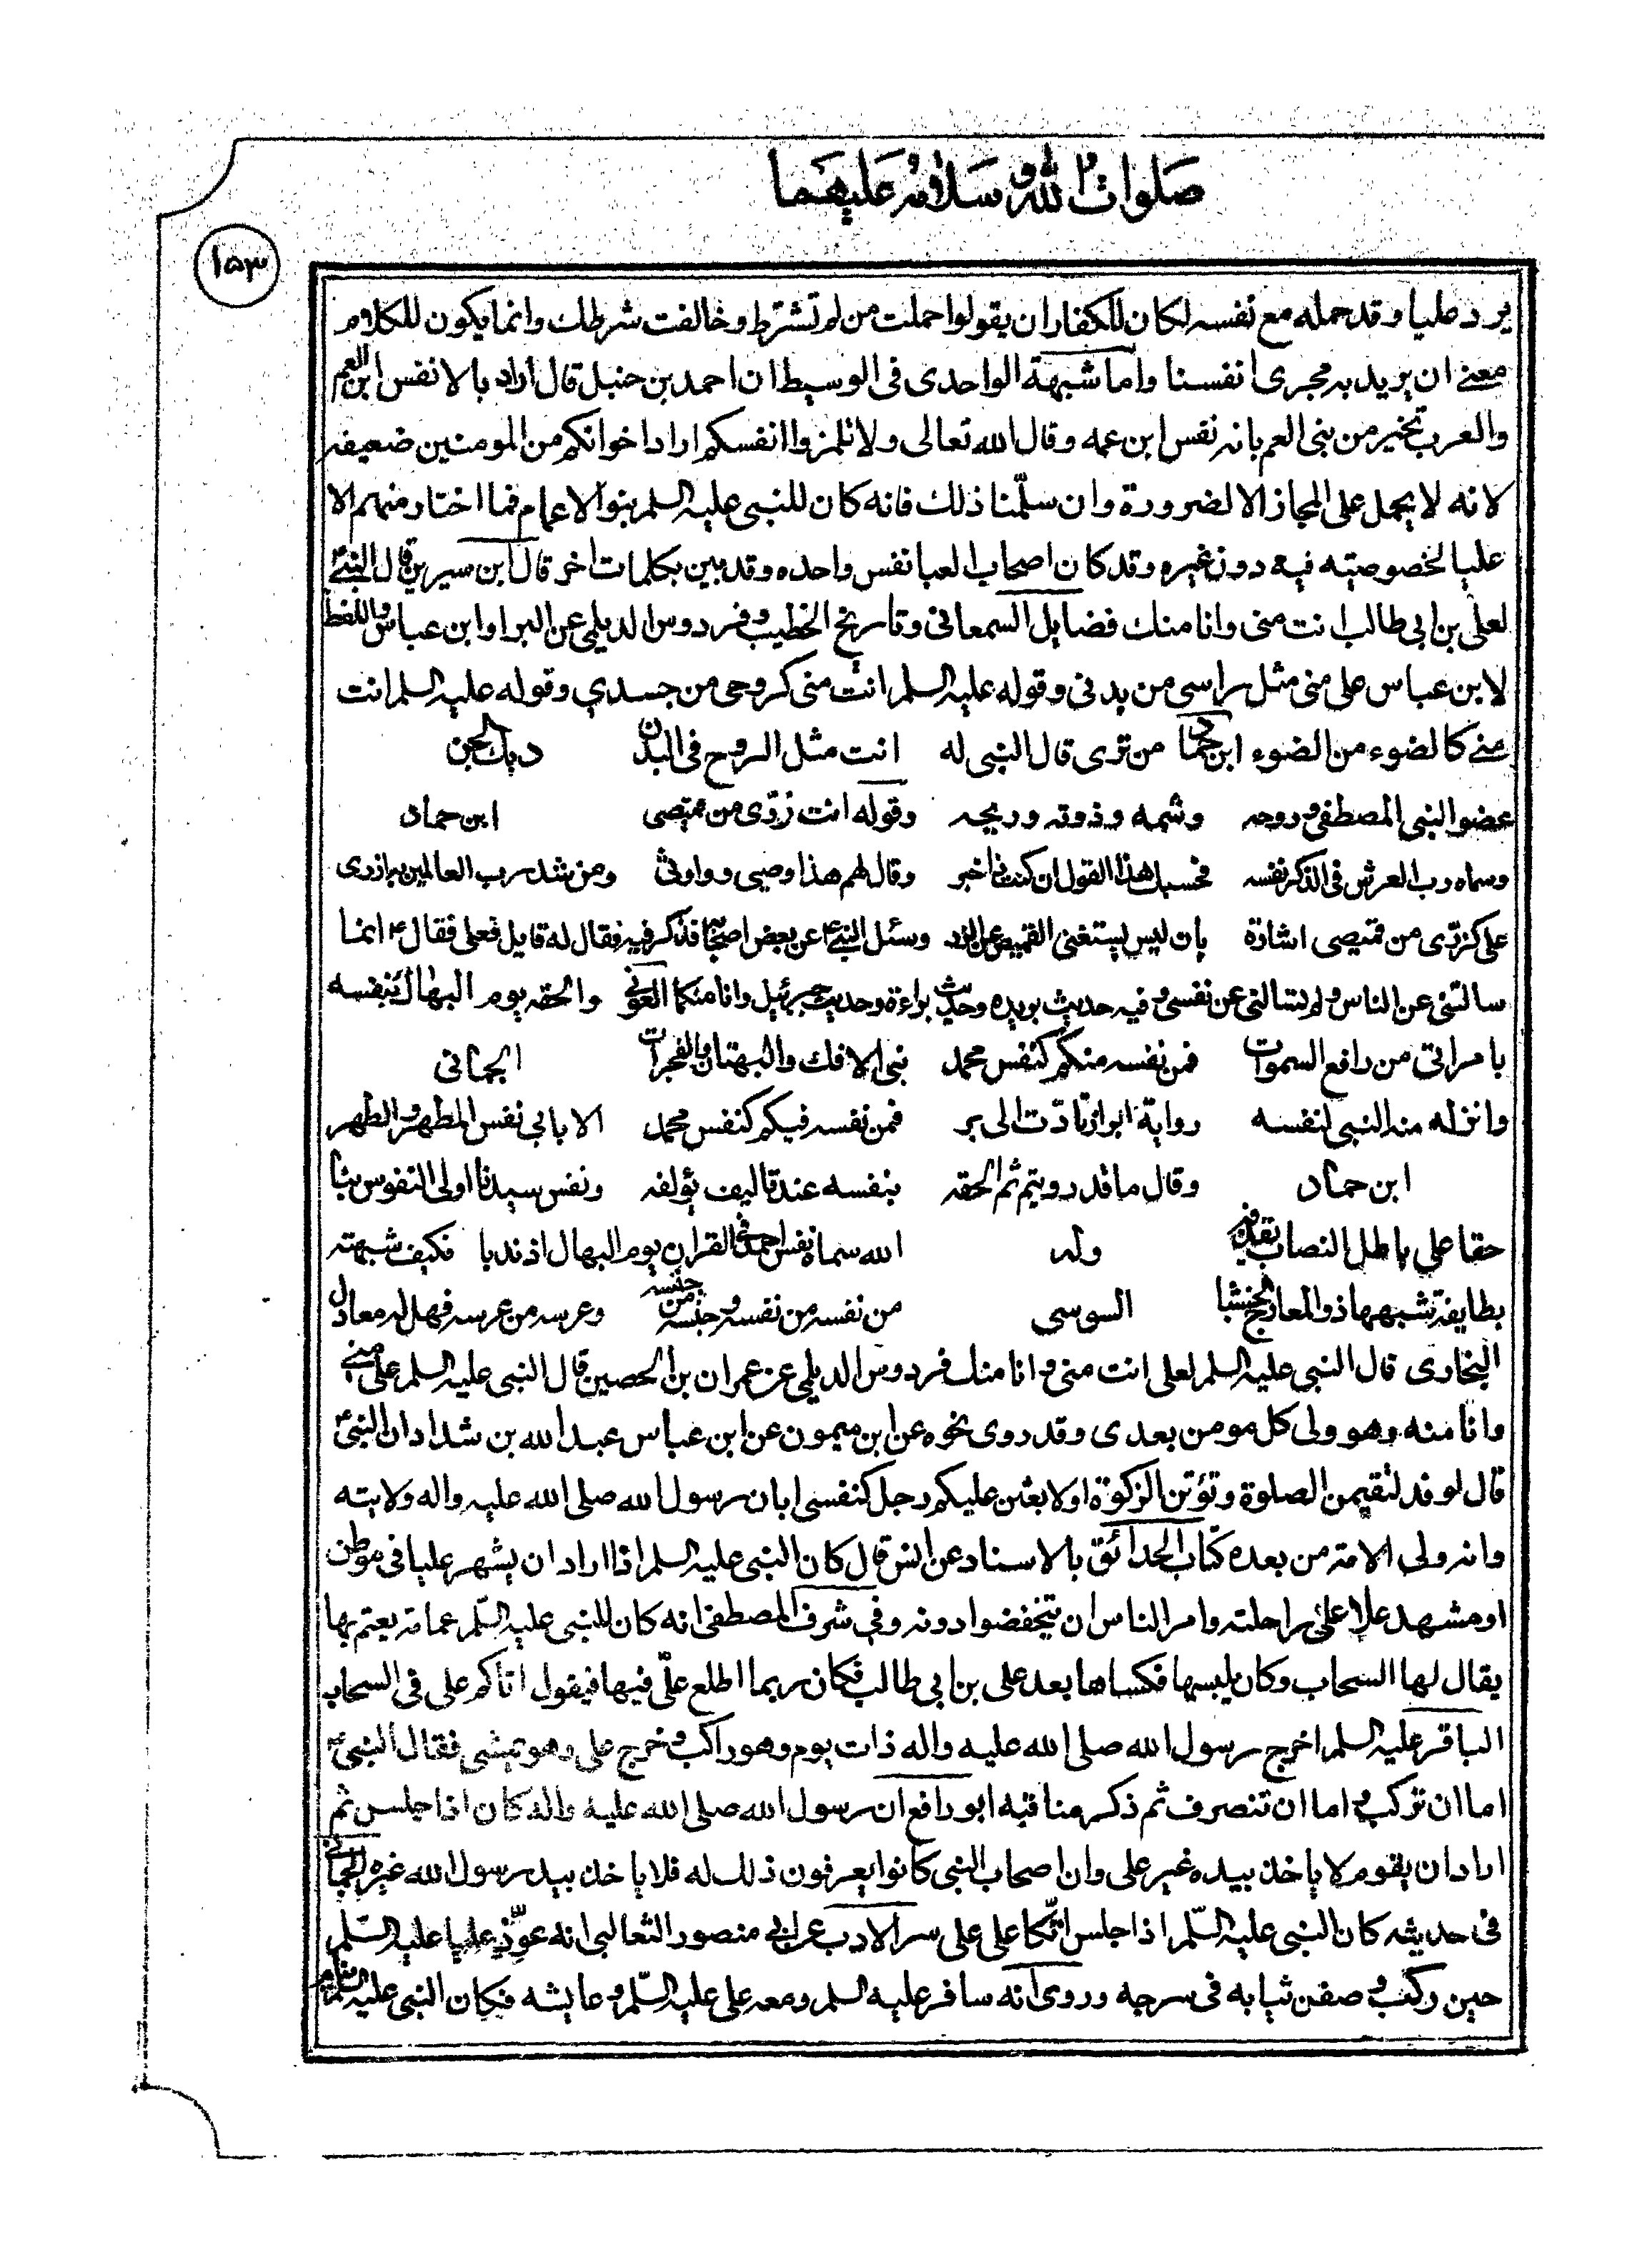 صلوات الله وسلامه عليهما
١٥٣
يرد عليا وقد حمله مع نفسه لكان للكفار ان يقولوا حملت من لم تشترط وخالفت شرطك وانما يكون للكلام
معنى ان يريد به مجرى انفسنا واما شبهة الواحدى فى الوسيط ان احمد بن حنبل قال اراد بالانفس ابن العم
والعرب تخبر من بنى العم بانه نفس ابن عمه وقال الله تعالى ولا تلمزوا انفسكم اراد اخوانكم من المومنين ضعيفه
لانه لا يحمل على المجاز الا لضرورة وان سلّمنا ذلك فانه كان للنبى عليه السلم بنو الاعمام فما اختار منهم الا
عليا لخصوصيته فيه دون غيره وقد كان اصحاب العبا نفس واحده وقد بين بكلمات اخر قال ابن سيرين قال النبىؐ
لعلى بن ابى طالب انت منى وانا منك فضايل السمعانى وتاريخ الخطيب وفردوس الديلمى عن البرا وابن عباس واللفظ
لابن عباس على منى مثل راسى من بدنى وقوله عليه السلم انت منى كروحى من جسدي وقوله عليه السلم انت
منى كالضوء من الضوء ابن حماد من ترى قال النبى له انت مثل الروح فى البدن ديك الجن
عضو النبى المصطفى وروحه وشمه وذوقه وريحه وقوله انت زرّى من قميصى ابن حماد
وسماه رب العرش فى الذكر نفسه فحسبك هذا القول ان كنت ذا خبر وقال لهم هذا وصيى ووارثى ومن شد رب العالمين به ازرى
على كزرّى من قميصى اشارة بان ليس يستغنى القميص عن الزر وسئل النبىؐ عن بعض اصحابه فذكر فيه فقال له قايل فعلى فقالؐ انما
سالتنى عن الناس ولم تسالنى عن نفسى وفيه حديث بريده وحديث براءة وحديث جبرئيل وانا منكما العونى والحقه يوم البهال بنفسه
بامر اتى من رافع السموات فمن نفسه منكم كنفس محمد بنى الافك والبهتان والفجرات الحمانى
وانزله منه النبى لنفسه رواية ابرار تادّت الى بر فمن نفسه فيكم كنفس محمد الا بابى نفس المطهر والطهر
ابن حماد وقال ما قد رويتم ثم الحقه بنفسه عند تاليف يؤلفه ونفس سيدنا اولى النفوس بنا
حقا على باطل النصاب نقذفه وله الله سماه نفس احمد فى القران يوم البهال اذ ندبا فكيف شبهته
بطايفة شبهها ذو المعارج الخشبا السوسى من نفسه من نفسه وجنسه من جنسه وعرسه من عرسه فهل له معادل
البخارى قال النبى عليه السلم لعلى انت منى وانا منك فردوس الديلمى عن عمران بن الحصين قال النبى عليه السلم على منى
وانا منه وهو ولى كل مومن بعدى وقد روى نحوه عن ابن ميمون عن ابن عباس عبد الله بن شداد ان النبىؐ
قال لوفد لتقيمن الصلوة وتؤتن الزكوة او لابعثن عليكم رجل كنفسى ابان رسول الله صلى الله عليه واله ولايته
وانه ولى الامة من بعده كتاب الحدائق بالاسناد عن انس قال كان النبى عليه السلم اذا اراد ان يشهر عليا فى موطن
او مشهد علا على راحلته وامر الناس ان يتخفضوا دونه وفى شرف المصطفى انه كان للنبى عليه السّلم عمامة يعتم بها
يقال لها السحاب وكان يلبسها فكساها بعد على بن ابى طالب فكان ربما اطلع علىّ فيها فيقول اتاكم على فى السحاب
الباقر عليه السلم اخرج رسول الله صلى الله عليه واله ذات يوم وهو راكب وخرج على وهو يمشى فقال النبىؐ
اما ان تركب واما ان تنصرف ثم ذكر مناقبه ابو رافع ان رسول الله صلى الله عليه واله كان اذا جلس ثم
اراد ان يقوم لا ياخذ بيده غير على وان اصحاب النبى كانوا يعرفون ذلك له فلا ياخذ بيد رسول الله غيره الجمانى
فى حديثه كان النبى عليه السّلم اذا جلس اتّكا على على سر الادب عن ابى منصور الثعالبى انه عوّذ عليا عليه السّلم
حين ركب وصفن ثيابه فى سرجه وروى انه سافر عليه السلم ومعه على عليه السّلم وعايشه فكان النبى عليه السلم